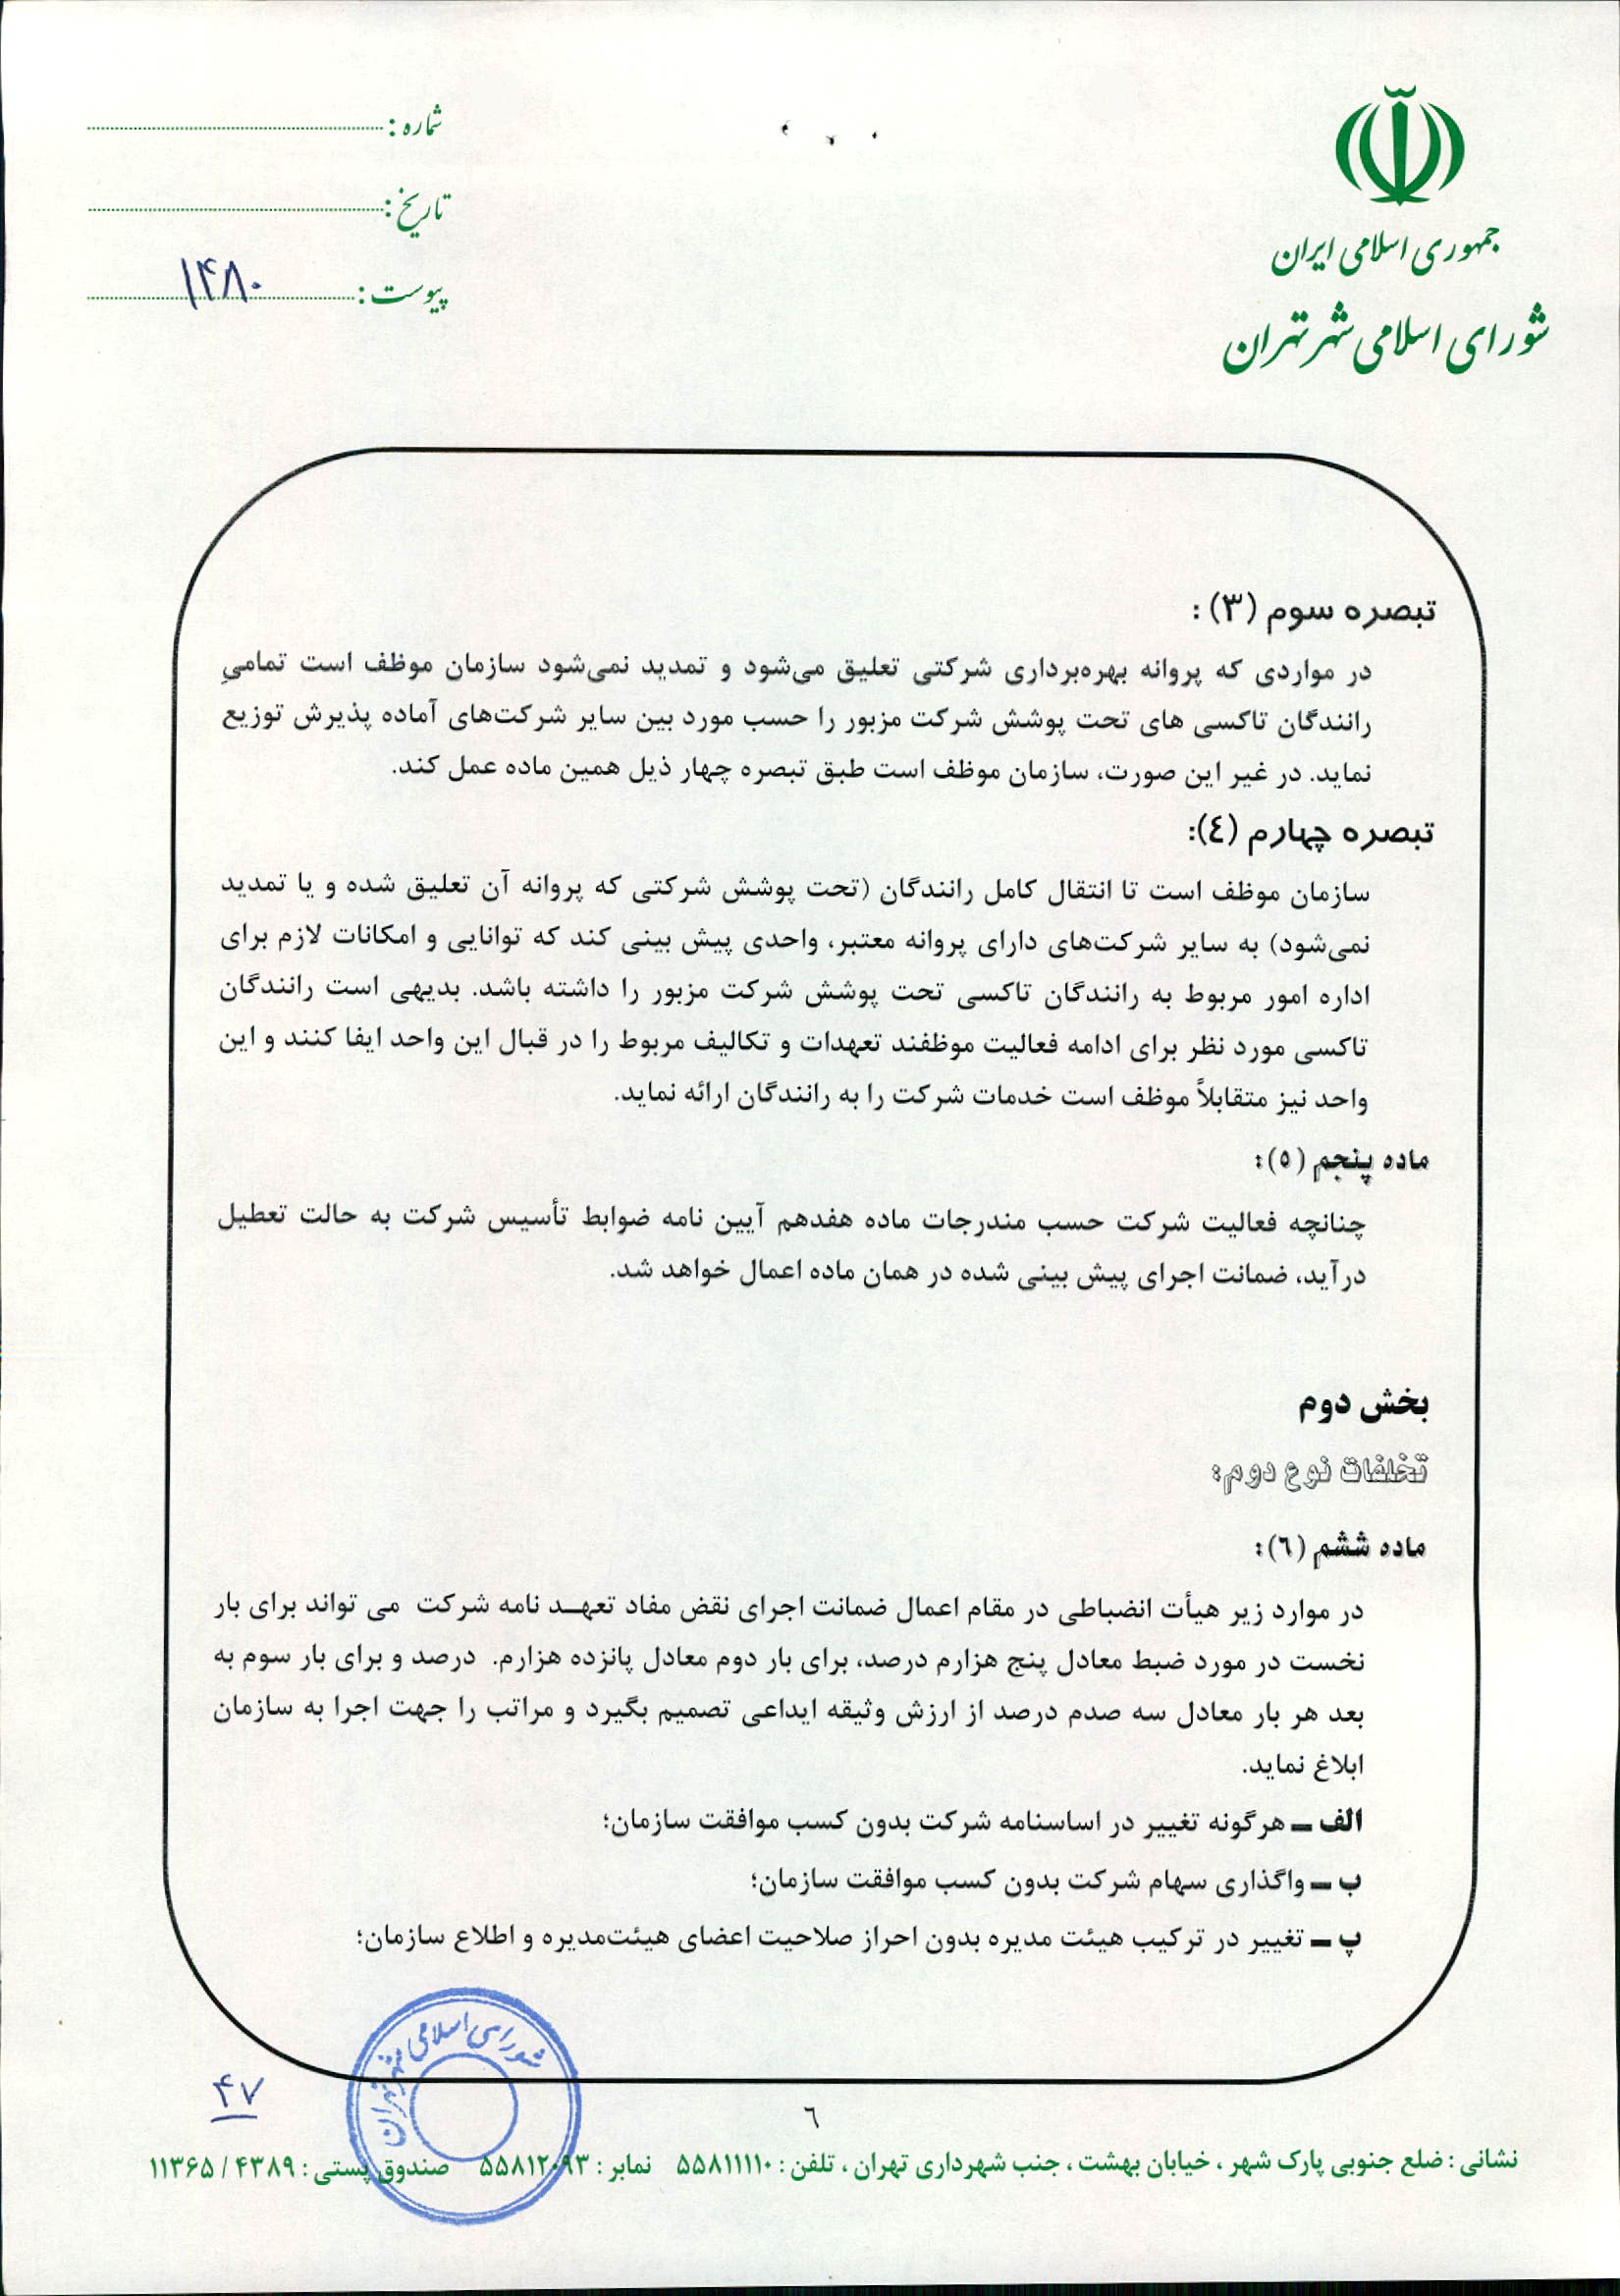 جمهوری اسلامی ایران
شورای اسلامی شهر تهران
شماره :
تاریخ :
پیوست : ۱۴۸۰
تبصره سوم (۳) :
در مواردی که پروانه بهره‌برداری شرکتی تعلیق می‌شود و تمدید نمی‌شود سازمان موظف است تمامیِ
رانندگان تاکسی های تحت پوشش شرکت مزبور را حسب مورد بین سایر شرکت‌های آماده پذیرش توزیع
نماید. در غیر این صورت، سازمان موظف است طبق تبصره چهار ذیل همین ماده عمل کند.
تبصره چهارم (٤):
سازمان موظف است تا انتقال کامل رانندگان (تحت پوشش شرکتی که پروانه آن تعلیق شده و یا تمدید
نمی‌شود) به سایر شرکت‌های دارای پروانه معتبر، واحدی پیش بینی کند که توانایی و امکانات لازم برای
اداره امور مربوط به رانندگان تاکسی تحت پوشش شرکت مزبور را داشته باشد. بدیهی است رانندگان
تاکسی مورد نظر برای ادامه فعالیت موظفند تعهدات و تکالیف مربوط را در قبال این واحد ایفا کنند و این
واحد نیز متقابلاً موظف است خدمات شرکت را به رانندگان ارائه نماید.
ماده پنجم (٥):
چنانچه فعالیت شرکت حسب مندرجات ماده هفدهم آیین نامه ضوابط تأسیس شرکت به حالت تعطیل
درآید، ضمانت اجرای پیش بینی شده در همان ماده اعمال خواهد شد.
بخش دوم
تخلفات نوع دوم:
ماده ششم (٦):
در موارد زیر هیأت انضباطی در مقام اعمال ضمانت اجرای نقض مفاد تعهـد نامه شرکت می تواند برای بار
نخست در مورد ضبط معادل پنج هزارم درصد، برای بار دوم معادل پانزده هزارم. درصد و برای بار سوم به
بعد هر بار معادل سه صدم درصد از ارزش وثیقه ایداعی تصمیم بگیرد و مراتب را جهت اجرا به سازمان
ابلاغ نماید.
الف ـ هرگونه تغییر در اساسنامه شرکت بدون کسب موافقت سازمان؛
ب ـ واگذاری سهام شرکت بدون کسب موافقت سازمان؛
پ ـ تغییر در ترکیب هیئت مدیره بدون احراز صلاحیت اعضای هیئت‌مدیره و اطلاع سازمان؛
شورای اسلامی شهر تهران
۴۷
٦
نشانی : ضلع جنوبی پارک شهر ، خیابان بهشت ، جنب شهرداری تهران ، تلفن : ۵۵۸۱۱۱۱۰ نمابر : ۵۵۸۱۲۰۹۳ صندوق پستی : ۴۳۸۹ / ۱۱۳۶۵